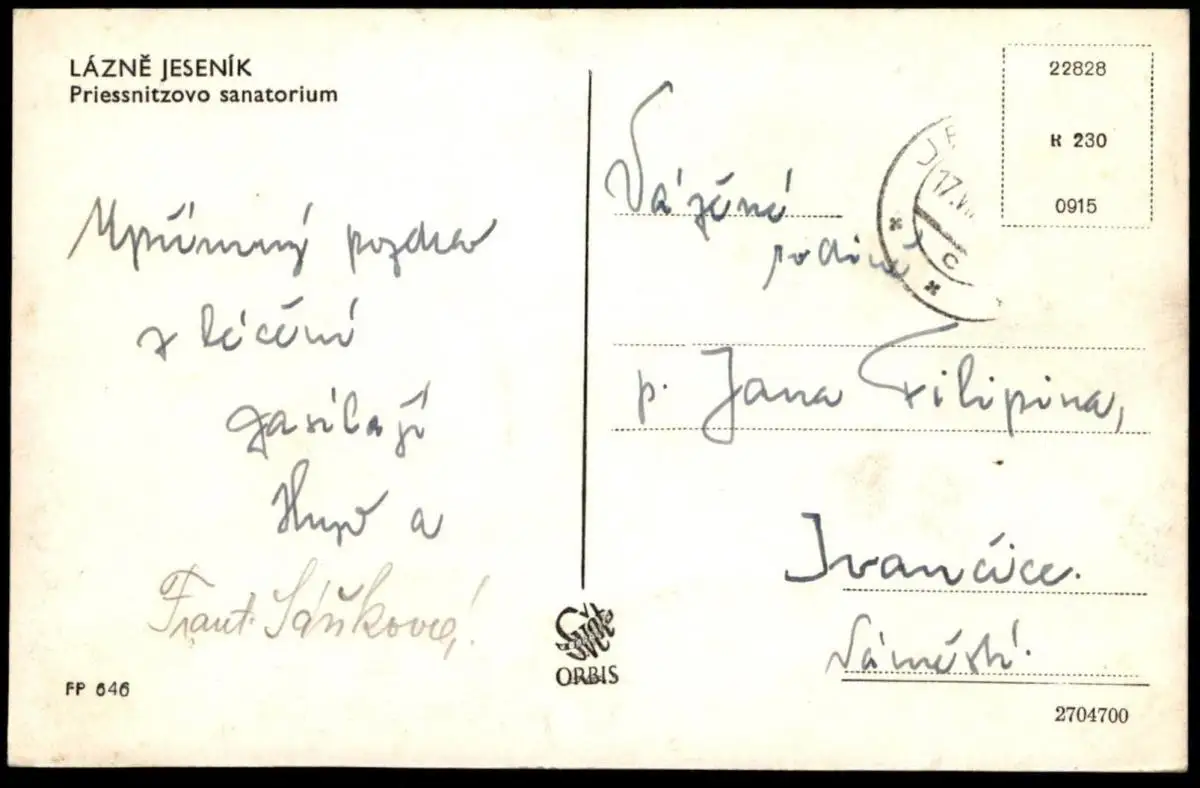 LÁZNĚ JESENÍK
Priessnitzovo sanatorium
Upřímný pozdrav
z léčení
zasílají
a
Frant. Sáškovi!
FP 646
ORBIS
Vážené
rodině
p. Jana Filipina,
Ivančice.
Náměstí.
22828
K 230
0915
17.VI
C
2704700